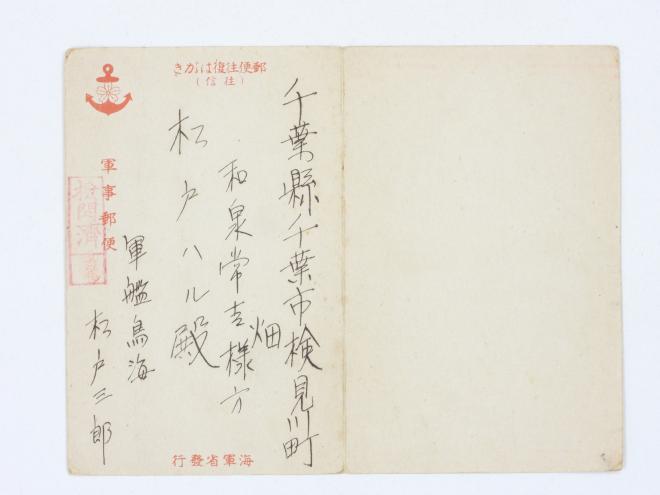 郵便往復はがき
(往信)
千葉縣千葉市検見川町
畑
和泉常吉様方
松戸ハル殿
軍事郵便
検閲済
軍艦鳥海
松戸三郎
海軍省發行